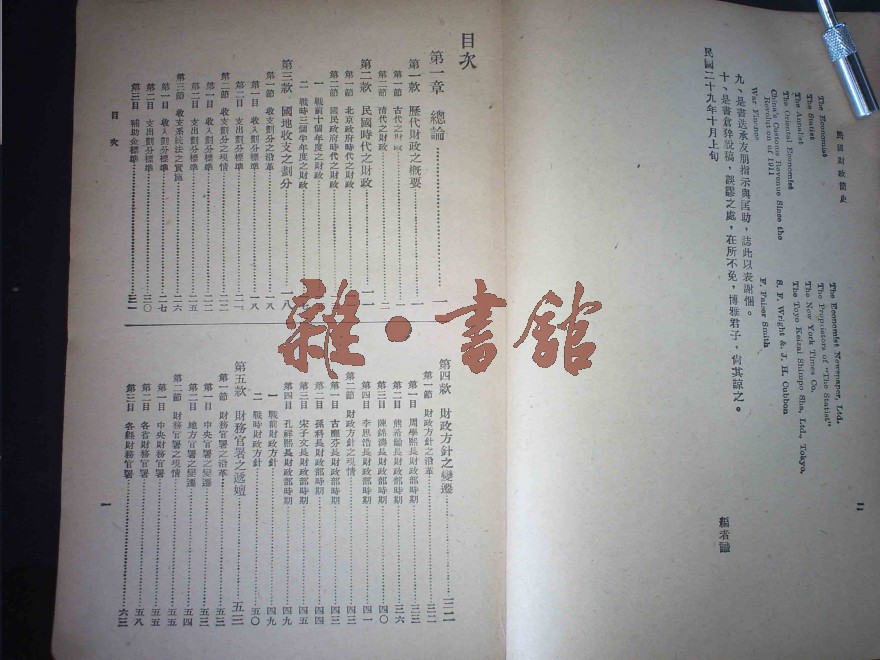 民國財政簡史
二
The Economist
The Economist Newspaper, Ltd.
The Statist
The Proprietors of "The Statist"
The Annalist
The New York Times Co.
The Oriental Economist
The Toyo Keizai Shimpo Sha, Ltd., Tokyo.
China's Customs Revenue Since the
Revolution of 1911
S. F. Wright & J. H. Cubbon
War Finance
F. Faiser Smith
九、是書迭承友朋指示與匡助，誌此以表謝悃。
十、是書倉猝脫稿，誤謬之處，在所不免，博雅君子，尚其諒之。
民國二十九年十月上旬
編者識
目次
第一章 總論 一
第一款 歷代財政之概要 一
第一節 古代之財政 一
第二節 清代之財政 二
第二款 民國時代之財政 一一
第一節 北京政府時代之財政
第二節 國民政府時代之財政
一 戰前十個年度之財政
二 戰時三個半年度之財政
第三款 國地收支之劃分 一八
第一節 收支劃分之沿革 一八
第一目 收入劃分標準 一八
第二目 支出劃分標準
第二節 收支劃分之現情 二二
第一目 收入劃分標準 二二
第二目 支出劃分標準 二五
第三節 收支系統法之實施 二六
第一目 收入劃分標準 二七
第二目 支出劃分標準 三〇
第三目 補助金標準 三一
第四款 財政方針之變遷 三二
第一節 財政方針之沿革 三二
第一目 周學熙長財政部時期 三三
第二目 熊希齡長財政部時期 三六
第三目 陳錦濤長財政部時期 四〇
第四目 李思浩長財政部時期 四一
第二節 財政方針之現情 四三
第一目 古應芬長財政部時期 四三
第二目 孫科長財政部時期 四四
第三目 宋子文長財政部時期 四五
第四目 孔祥熙長財政部時期 四九
一 戰前財政方針 四九
二 戰時財政方針 五〇
第五款 財務官署之遞嬗 五三
第一節 財務官署之沿革 五三
第一目 中央官署之變遷 五三
第二目 地方官署之變遷 五四
第二節 財務官署之現情 五五
第一目 中央財務官署 五五
第二目 各省財務官署 五八
第三目 各縣財務官署 六三
目次
一
雜·書館